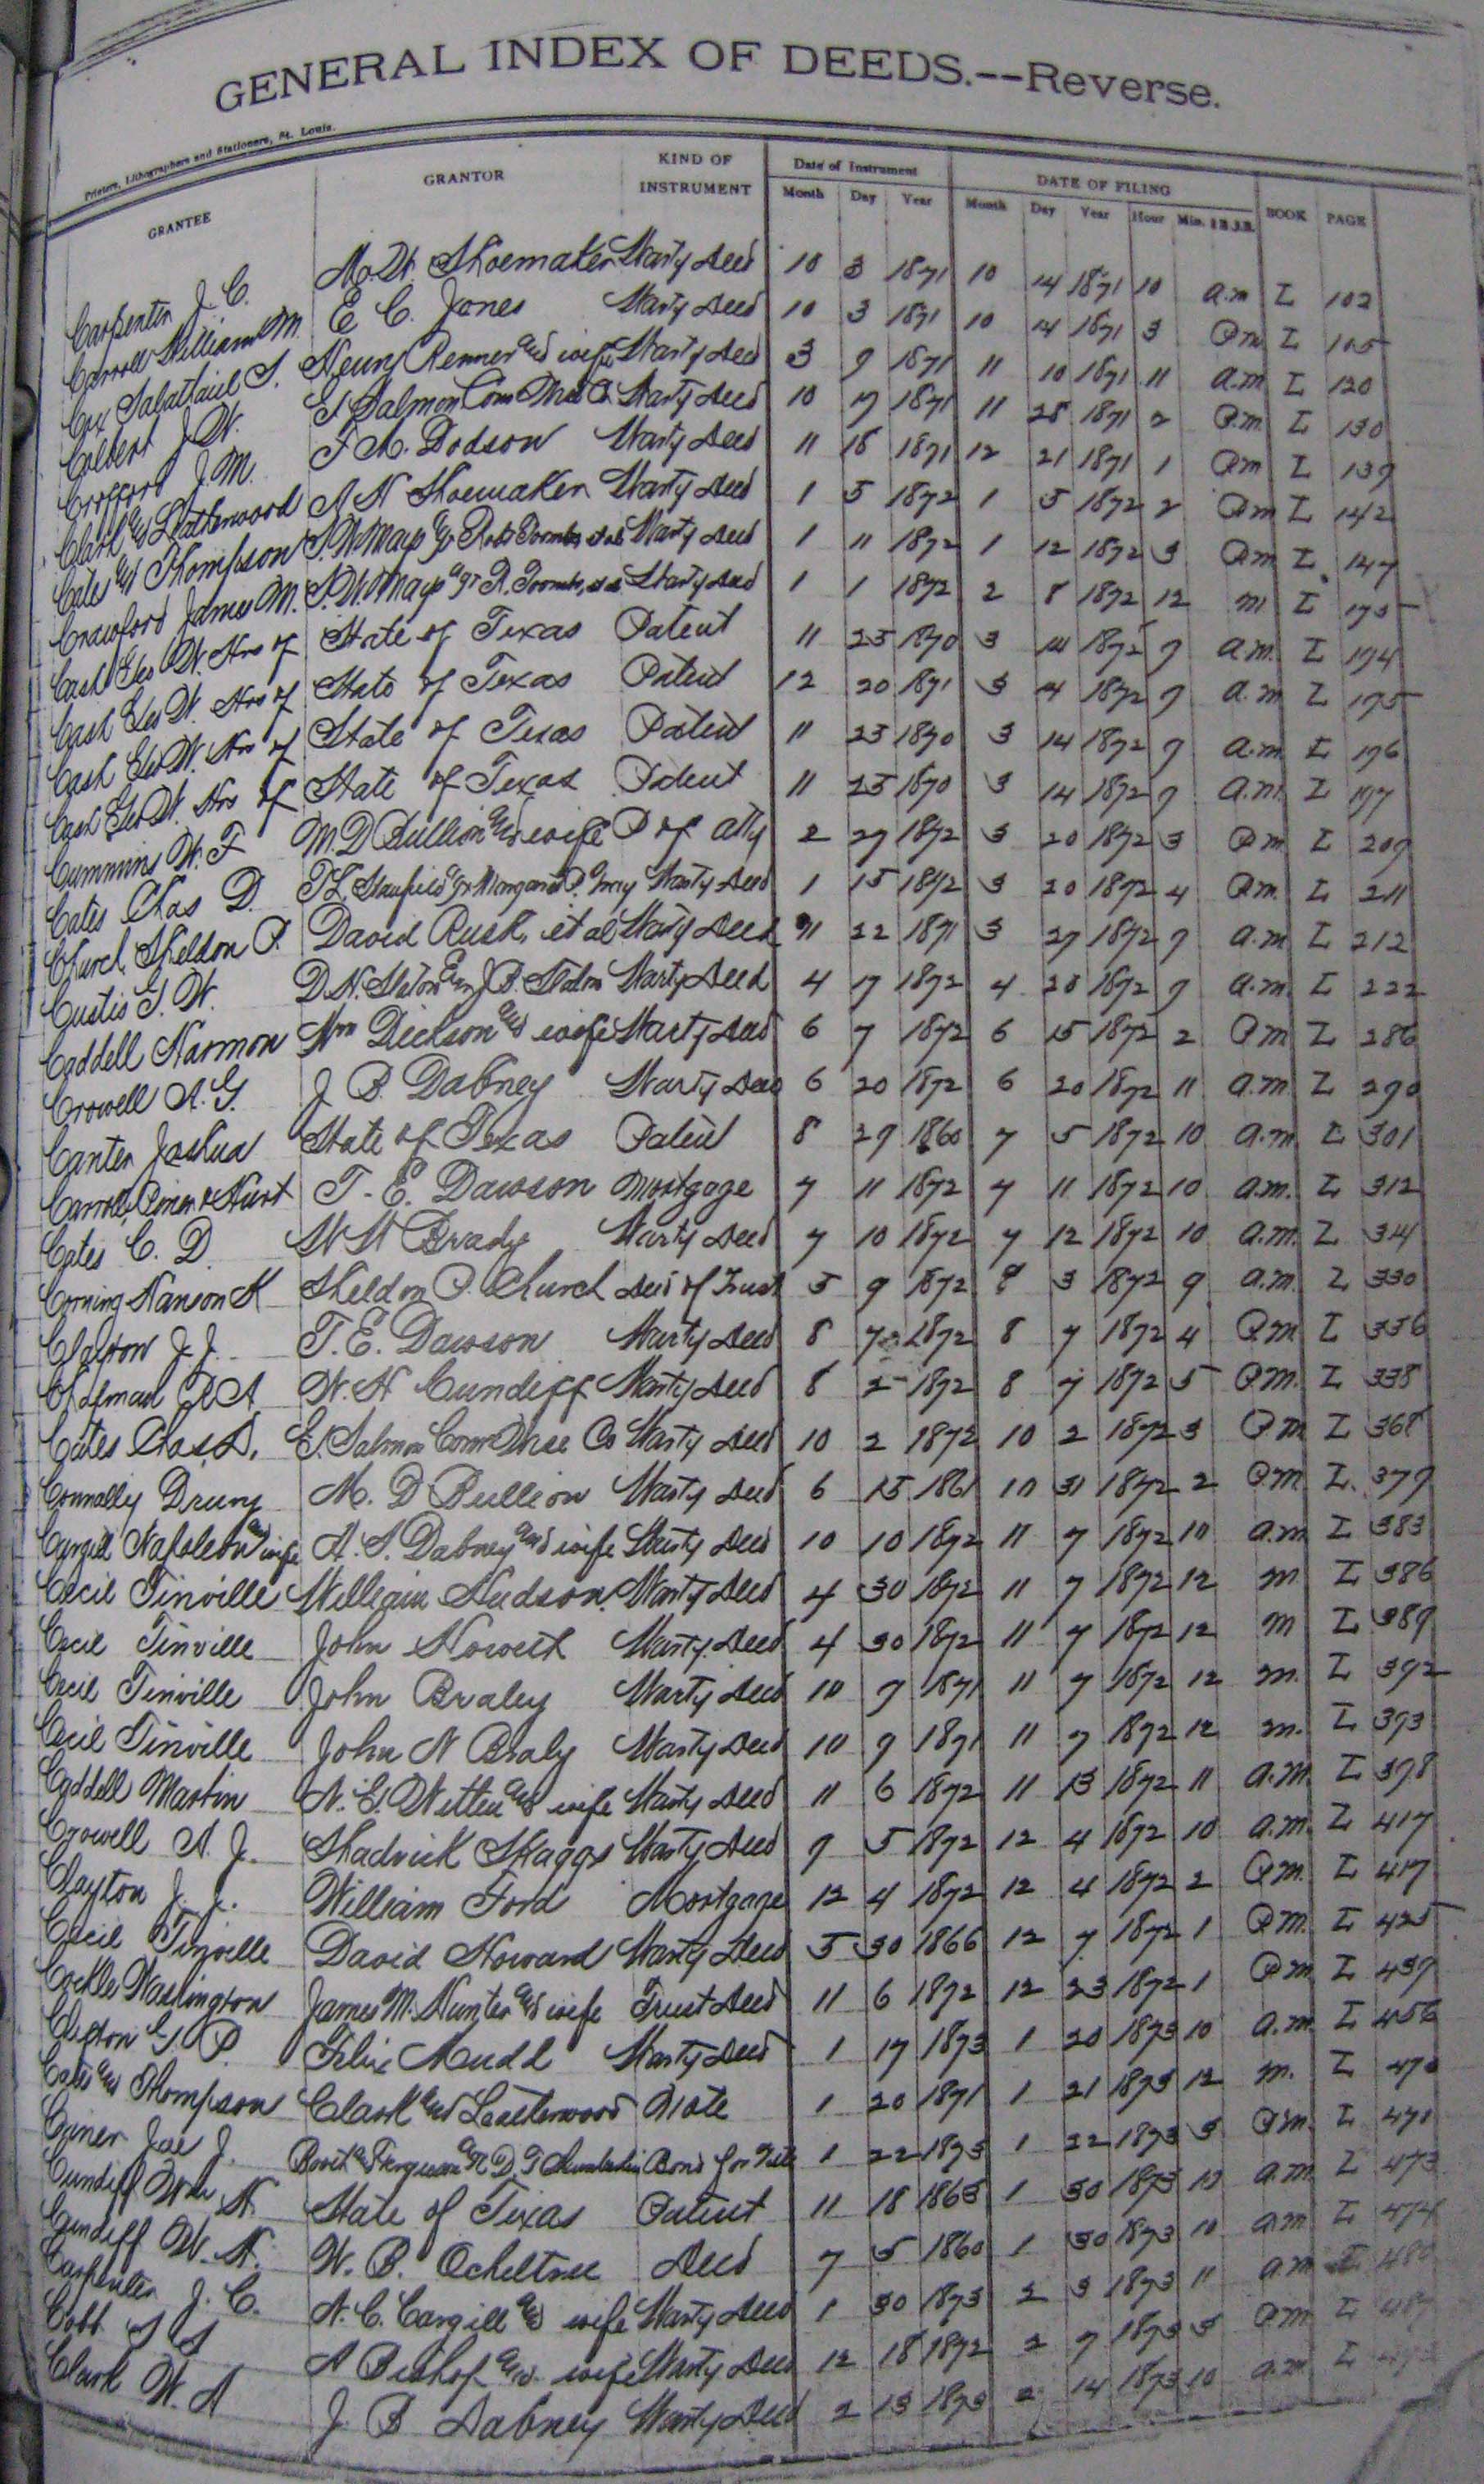 GENERAL INDEX OF DEEDS.--Reverse.
Printers, Lithographers and Stationers, St. Louis.
GRANTEE GRANTOR KIND OF INSTRUMENT Date of Instrument DATE OF FILING BOOK PAGE
Month Day Year Month Day Year Hour Min.
Carpenter J. C. Shoemaker Warty Deed 10 3 1871 10 14 1871 10 a.m I 102
Carroll William M. E C. Jones Warty Deed 10 3 1871 10 14 1871 3 P.m I 105
Cox S. Henry Renner and wife Warty Deed 3 9 1871 11 10 1871 11 a.m I 120
Colbert J W. Warty Deed 10 17 1871 11 28 1871 2 P.m. I 130
Crofford J. M. F M. Dodson Warty Deed 11 18 1871 12 21 1871 1 P.m I 139
Clark and Leatherwood A N Shoemaker Warty Deed 1 5 1872 1 5 1872 2 P.m I 142
Cates and Thompson S. W. Mays Warty Deed 1 11 1872 1 12 1872 3 P.m I 147
Crawford James M. S. W. Mays Warty Deed 1 1 1872 2 8 1872 12 m I 175
Cash Geo W. Hrs of State of Texas Patent 11 23 1870 3 14 1872 9 a.m. I 194
Cash Geo W. Hrs of State of Texas Patent 12 20 1871 3 14 1872 9 a.m I 195
Cash Geo W. Hrs of State of Texas Patent 11 23 1870 3 14 1872 9 a.m I 196
Cash Geo W. Hrs of State of Texas Patent 11 23 1870 3 14 1872 9 a.m. I 197
Cummins W. F M. D Bullion and wife P of atty 2 27 1872 3 20 1872 3 P.m I 209
Cates Chas D. T L Stanfield Warty Deed 1 15 1872 3 20 1872 4 P.m. I 211
Church Sheldon P. David Rusk, et al Warty Deed 11 22 1871 3 27 1872 9 a.m I 212
Custis G. W. Warty Deed 4 17 1872 4 28 1872 9 a.m. I 222
Caddell Harmon Wm Dickson and wife Warty Deed 6 7 1872 6 15 1872 2 P.m I 286
Crowell A. G. J B. Dabney Warty Deed 6 20 1872 6 20 1872 11 a.m. I 290
Canter Joshua State of Texas Patent 8 29 1860 7 5 1872 10 a.m I 301
Carroll, Piner & Hurt T. E. Dawson Mortgage 7 11 1872 7 11 1872 10 a.m. I 312
Cates C. D. W W Brady Warty Deed 7 10 1872 7 12 1872 10 a.m. I 314
Corning Hanson K Sheldon P. Church Deed of Trust 5 9 1872 8 3 1872 9 a.m. I 330
Clayton J. J. T. E. Dawson Warty Deed 8 7 1872 8 7 1872 4 P.m I 336
Chapman R A W. H Cundiff Warty Deed 8 2 1872 8 7 1872 5 P.M. I 338
Cates Chas. D. Warty Deed 10 2 1872 10 2 1872 3 P.m I 368
Connally Drury M. D Bullion Warty Deed 6 15 1861 10 31 1872 2 P.M I. 379
Cargill Napoleon and wife A. S. Dabney and wife Warty Deed 10 10 1872 11 7 1872 10 a.m I 383
Cecil Tinville William Hudson Warty Deed 4 30 1872 11 7 1872 12 m I 386
Cecil Tinville John Howeth Warty Deed 4 30 1872 11 7 1872 12 m I 389
Cecil Tinville John Braley Warty Deed 10 9 1871 11 7 1872 12 m. I 392
Cecil Tinville John N Braly Warty Deed 10 9 1871 11 7 1872 12 m. I 393
Caddell Martin N. G. Witten and wife Warty Deed 11 6 1872 11 13 1872 11 a.m. I 398
Crowell A. J. Shadrick Skaggs Warty Deed 9 5 1872 12 4 1872 10 a.m. I 417
Clayton J. J. William Ford Mortgage 12 4 1872 12 4 1872 2 P.m. I 417
Cecil Tinville David Howard Warty Deed 5 30 1866 12 7 1872 1 P.M. I 425
Cockle Washington James M. Hunter and wife Trust Deed 11 6 1872 12 23 1872 1 P.m I 439
Clifton G P. Felix Mudd Warty Deed 1 17 1873 1 20 1873 10 a.m. I 456
Cates and Thompson Clark and Leatherwood Note 1 20 1871 1 21 1873 12 m. I 470
Joe J. Bond for Title 1 22 1873 1 22 1873 3 P.m. I 471
Cundiff Wm H. State of Texas Patent 11 18 1863 1 30 1873 10 a.m. I 473
Cundiff W. H. W. B. Ocheltree Deed 7 5 1860 1 30 1873 10 a.m I 474
Carpenter J. C. N. C. Cargill and wife Warty Deed 1 30 1873 2 3 1873 11 a.m I 480
Cobb S S A Bishop and wife Warty Deed 12 18 1872 2 7 1873 3 P.m I
Clark W. A J. B Dabney Warty Deed 2 13 1873 2 14 1873 10 a.m I